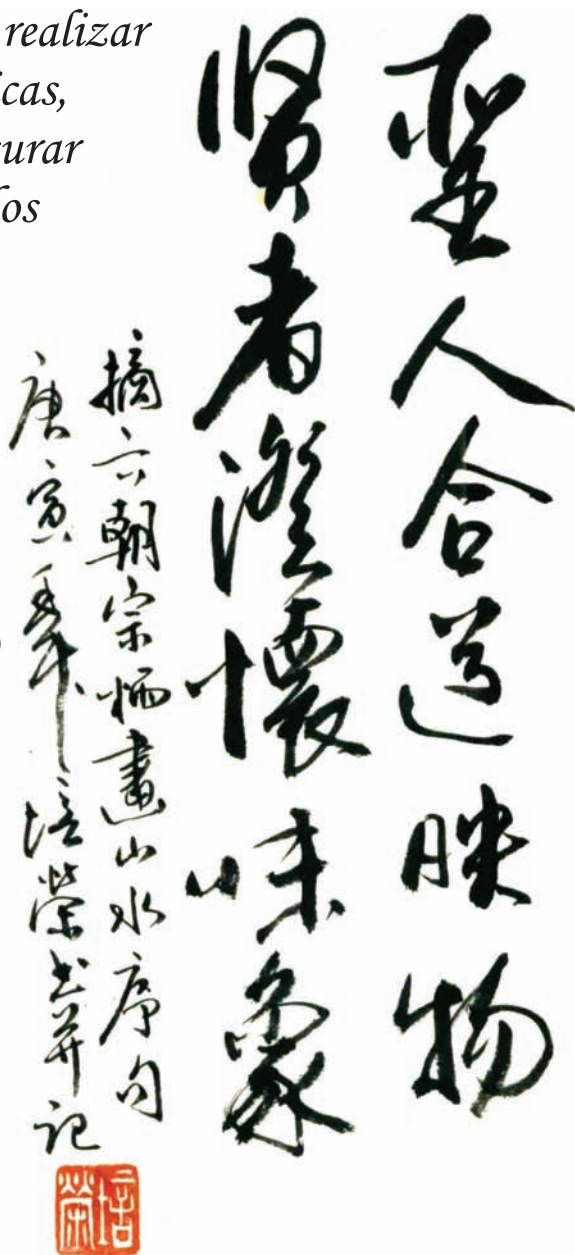 realizar
icas,
urar
los
聖人合道暎物
賢者澄懷味象
摘六朝宗炳畫山水序句
庚寅年培榮書并記
培榮